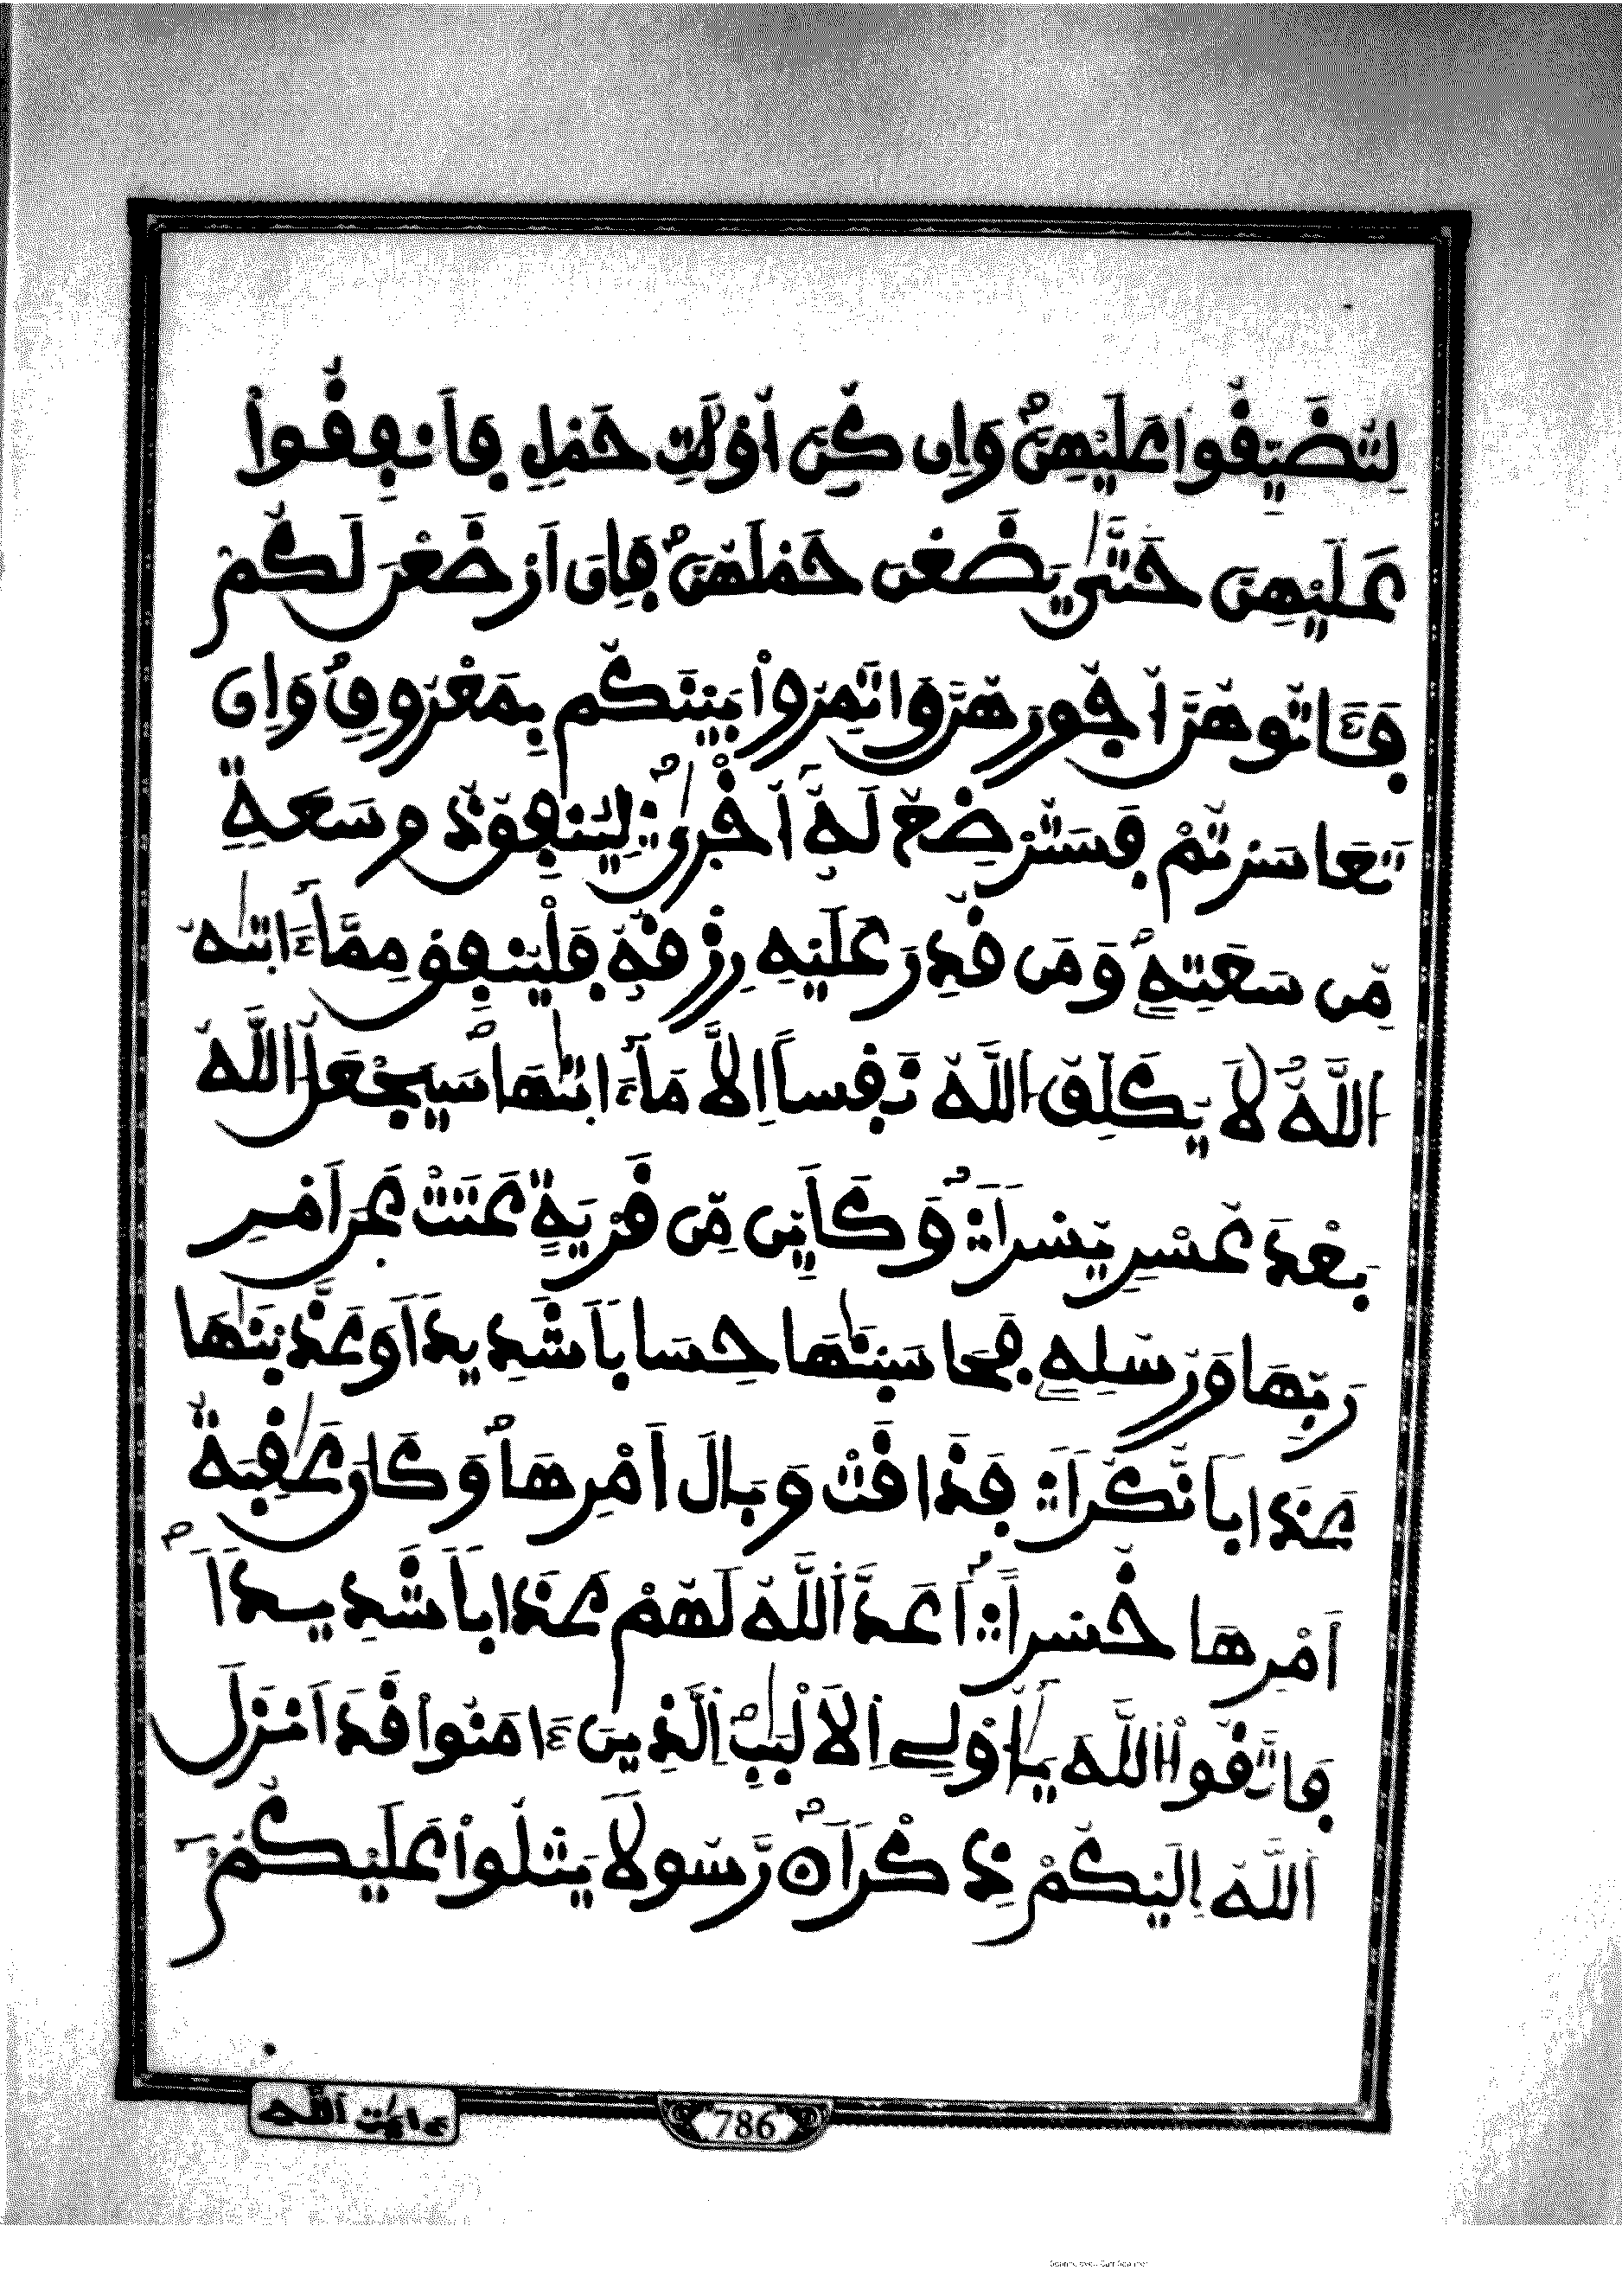 لِتُضَيِّقُوا۟ عَلَيْهِنَّۖ وَإِن كُنَّ أُو۟لَٰتِ حَمْلٍ فَأَنفِقُوا۟
عَلَيْهِنَّ حَتَّىٰ يَضَعْنَ حَمْلَهُنَّۖ فَإِنَ اَرْضَعْنَ لَكُمْ
فَـَٔاتُوهُنَّ أُجُورَهُنَّ وَاتَمِرُوا۟ بَيْنَكُم بِمَعْرُوفٖۖ وَإِن
تَعَاسَرْتُمْ فَسَتُرْضِعُ لَهُۥ أُخْرَىٰۖ لِيُنفِقْ ذُو سَعَةٖ
مِّن سَعَتِهِۦۖ وَمَن قُدِرَ عَلَيْهِ رِزْقُهُۥ فَلْيُنفِقْ مِمَّآ ءَاتَىٰهُ
اُ۬للَّهُۖ لَا يُكَلِّفُ اُ۬للَّهُ نَفْساً اِلَّا مَآ ءَاتَىٰهَاۖ سَيَجْعَلُ اُ۬للَّهُ
بَعْدَ عُسْرٖ يُسْراٗۖ وَكَأَيِّن مِّن قَرْيَةٍ عَتَتْ عَنَ اَمْرِ
رَبِّهَا وَرُسُلِهِۦ فَحَاسَبْنَٰهَا حِسَاباٗ شَدِيداٗ وَعَذَّبْنَٰهَا
عَذَاباٗ نُّكُراٗ فَذَاقَتْ وَبَالَ أَمْرِهَاۖ وَكَانَ عَٰقِبَةُ
أَمْرِهَا خُسْراًۖ اَعَدَّ اَ۬للَّهُ لَهُمْ عَذَاباٗ شَدِيداٗۖ
فَاتَّقُوا۟ اُ۬للَّهَ يَٰٓأُو۟لِے اِ۬لَالْبَٰبِۖ اِ۬لذِينَ ءَامَنُوا۟ قَدَ اَنزَلَ
اَ۬للَّهُ إِلَيْكُمْ ذِكْراٗۖ رَّسُولاٗ يَتْلُوا۟ عَلَيْكُمُۥٓ
ءَايَٰتِ اِ۬للَّهِ
786